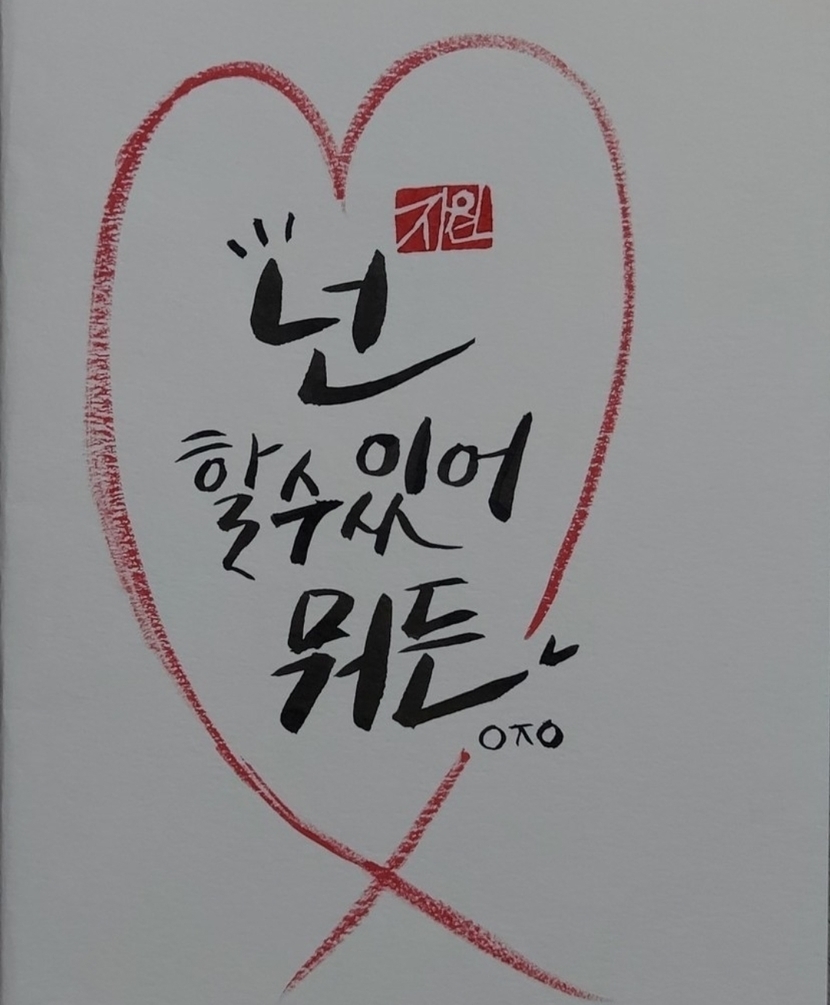 지원
넌
할 수 있어
뭐든
ㅇㅈㅇ